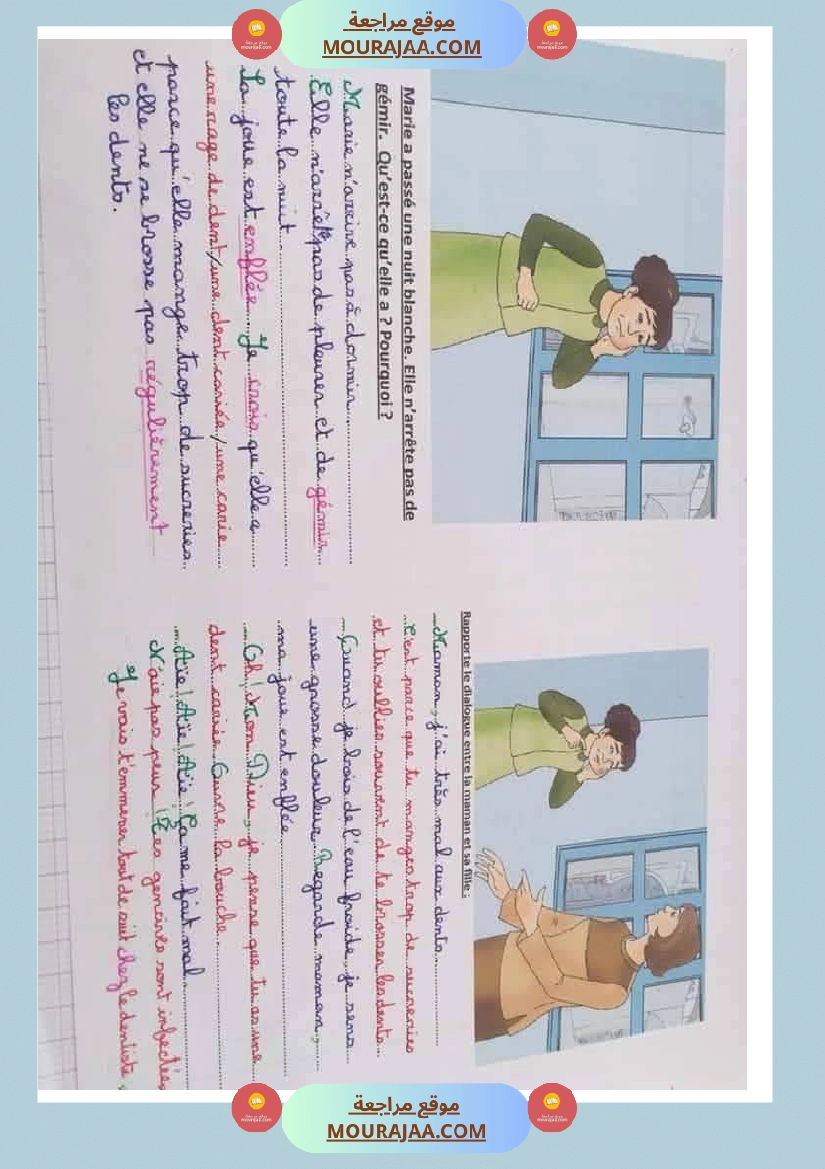 موقع مراجعة
MOURAJAA.COM
Marie a passé une nuit blanche. Elle n'arrête pas de
gémir. Qu'est-ce qu'elle a ? Pourquoi ?
Marie n'arrive pas à dormir.
Elle n'arrête pas de pleurer et de gémir
toute la nuit.
Sa joue est enflée. Je crois qu'elle a
une rage de dent/une dent cariée/une carie
parce qu'elle mange trop de sucreries
et elle ne se brosse pas régulièrement
les dents.
Rapporte le dialogue entre la maman et sa fille :
_Maman, j'ai très mal aux dents.
_C'est parce que tu manges trop de sucreries
et tu oublies souvent de te brosser les dents.
_Quand je bois de l'eau froide, je sens
une grosse douleur. Regarde maman,
ma joue est enflée.
_Oh! Mon Dieu, je pense que tu as une
dent cariée. Ouvre la bouche.
_Aïe! Aïe! Aïe! Ça me fait mal.
N'aie pas peur! Tes gencives sont infectées
Je vais t'emmener tout de suit chez le dentiste.
موقع مراجعة
MOURAJAA.COM